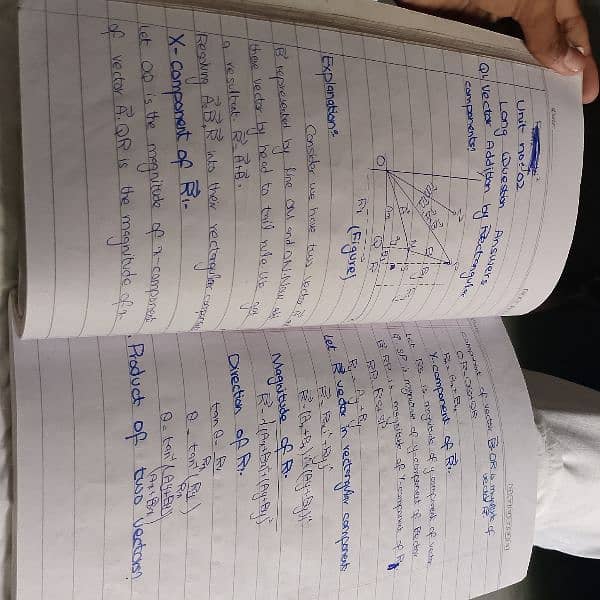 Unit no:02
Long Question Answers
Q1, Vector Addition by Rectangular
components
O
Q
R
(Figure)
Explanation:
Consider we have two vector
B represented by line OM and ON. Now add
these vector by head to tail rule
a resultant R = A+B.
Resolving A, B, R into their rectangular component
X-component of R:-
Let OQ is the magnitude of x-component
of vector A. QR is the magnitude of x-
component of vector B. OR is magnitude of
vector R
OR = OQ+QR
Rx = Ax + Bx
Y-component of R:-
Let RS is magnitude of y component of vector
A SP is magnitude of y component of vector
B RP is magnitude of Y component of R
RP = RS+SP
Ry = Ay + By
Let R vector in rectangular components
Magnitude of R.
Direction of R.
tan θ = Ry
Rx
θ = tan⁻¹ (Ry)
Rx
θ = tan⁻¹ (Ay+By)
Ax+Bx
Product of two vectors: